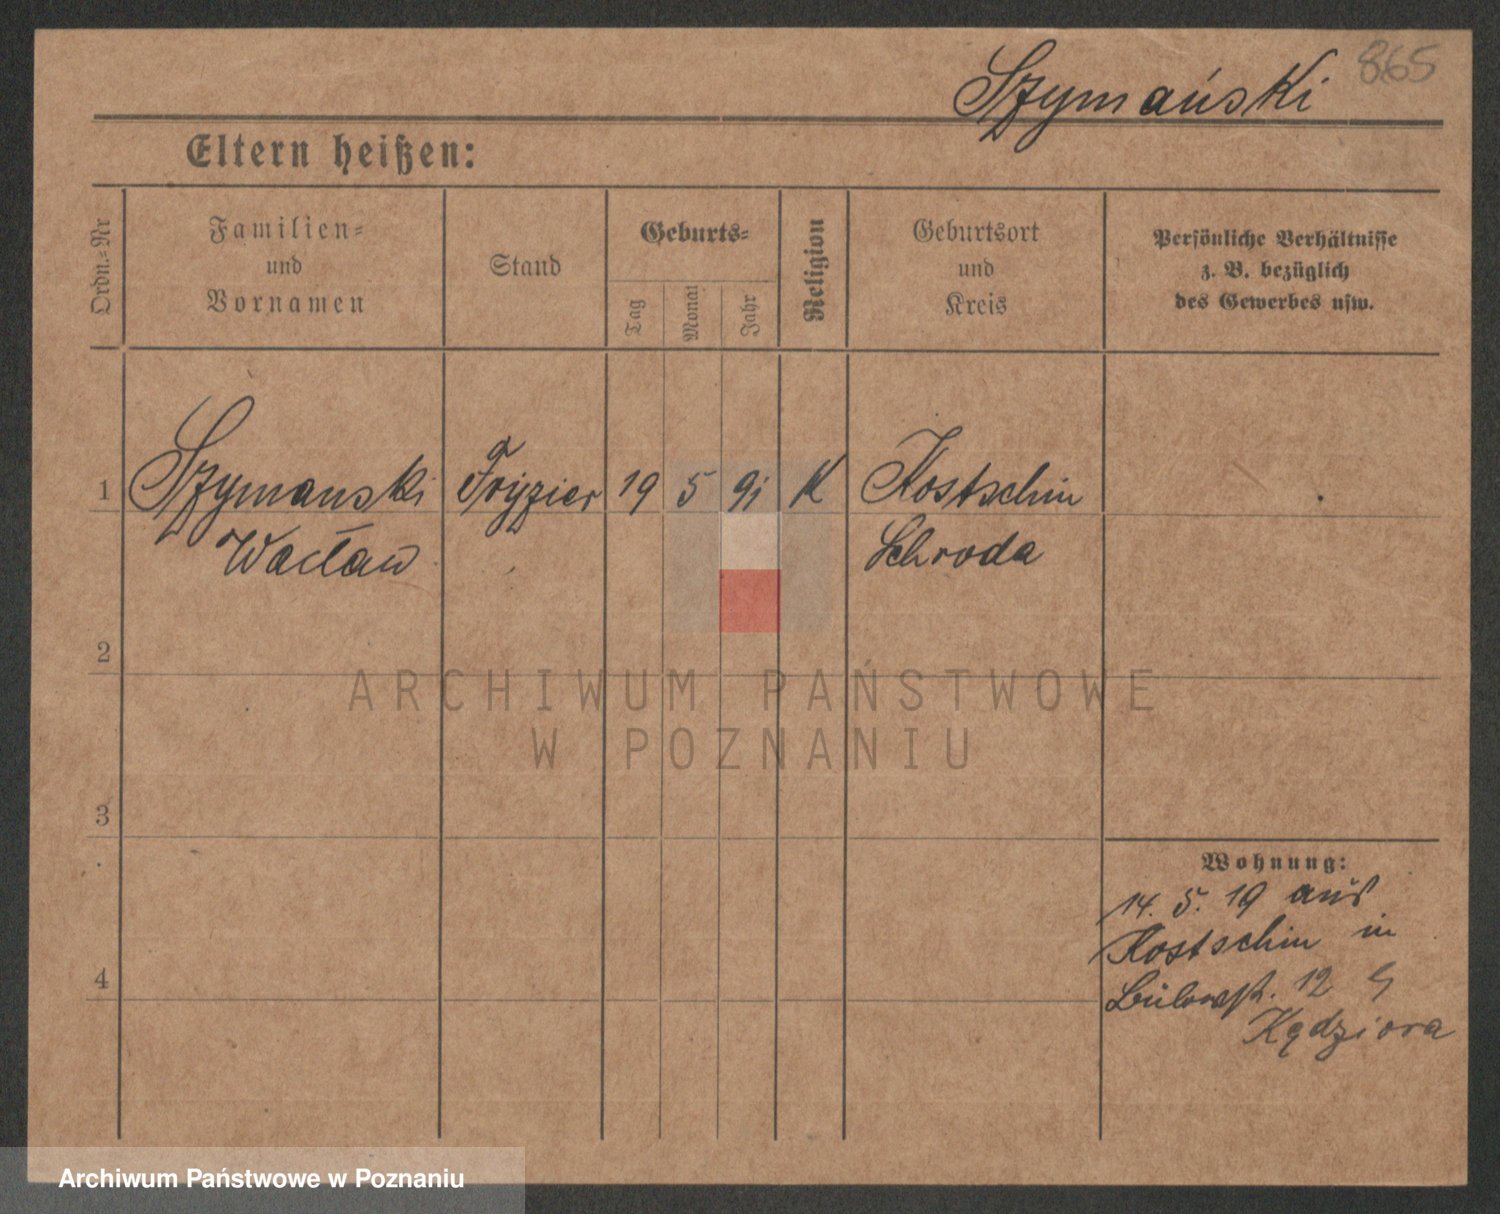 Szymański 865
Eltern heißen:
Ordn.-Nr
Familien-
und
Vornamen
Stand
Geburts-
Tag
Monat
Jahr
Religion
Geburtsort
und
Kreis
Persönliche Verhältnisse
z. B. bezüglich
des Gewerbes usw.
1 Szymanski Fryzier 19 5 91 K Kostschin
Wacław Schroda
2
ARCHIWUM PAŃSTWOWE
W POZNANIU
3
Wohnung:
14. 5. 19 aus
Kostschin in
4
Bülowst. 12
Kędziora
Archiwum Państwowe w Poznaniu